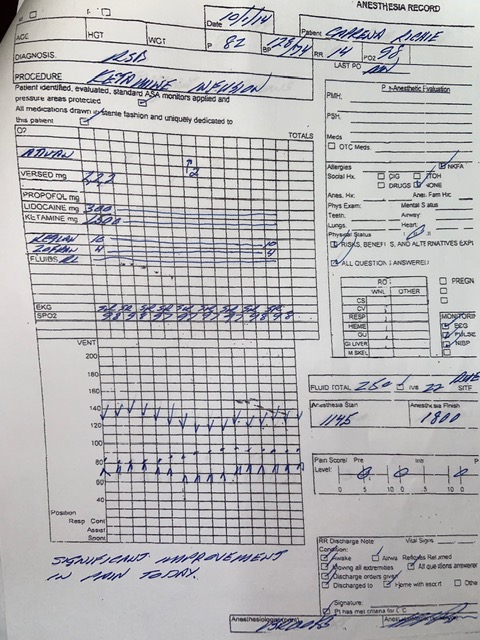 ANESTHESIA RECORD
Date 10/1/14
Patient
AGE HGT WGT P 82 BP 128/74 RR 14 PO2 98
LAST PO
DIAGNOSIS. RSD
PROCEDURE KETAMINE INFUSION
Patient identified, evaluated, standard ASA monitors applied and
pressure areas protected
All medications drawn in sterile fashion and uniquely dedicated to
this patient
TOTALS
O2
ATIVAN
2
VERSED mg 2,2,2
PROPOFOL mg
LIDOCAINE mg 300
KETAMINE mg
REGLAN 10 10
ZOFRAN 4 4
FLUIDS RL
EKG SR SR SR SR SR SR SR SR SR SR
SPO2 98 98
VENT
200
180
160
140
120
100
80
60
40
Position
Resp Cont
Assist
Spont
SIGNIFICANT IMPROVEMENT
IN PAIN TODAY.
Pre-Anesthetic Evaluation
PMH.
PSH.
Meds
OTC Meds.
Allergies NKFA
Social Hx. CIG ETOH
DRUGS NONE
Anes. Hx: Anes. Fam Hx:
Phys Exam: Mental Status
Teeth. Airway
Lungs. Heart
Physical Status
RISKS, BENEFITS, AND ALTERNATIVES EXPL
ALL QUESTION ANSWERED
PREGN
WNL OTHER
CS
CV
RESP
HEME
GU
GI LIVER
M SKEL
MONITORS
ECG
PULSE
NIBP
FLUID TOTAL 250 IV# 22 SITE
Anesthesia Start Anesthesia Finish
1145 1800
Pain Score/ Pre Int P
Level:
0 5 10 0 5 10 0
RR Discharge Note Vital Signs
Condition:
Awake Airway Reflexes Returned
Moving all extremities All questions answered
Discharge orders given
Discharged to Home with escort Othe
Signature:
Pt has met criteria for D/C
Anesthesiologist